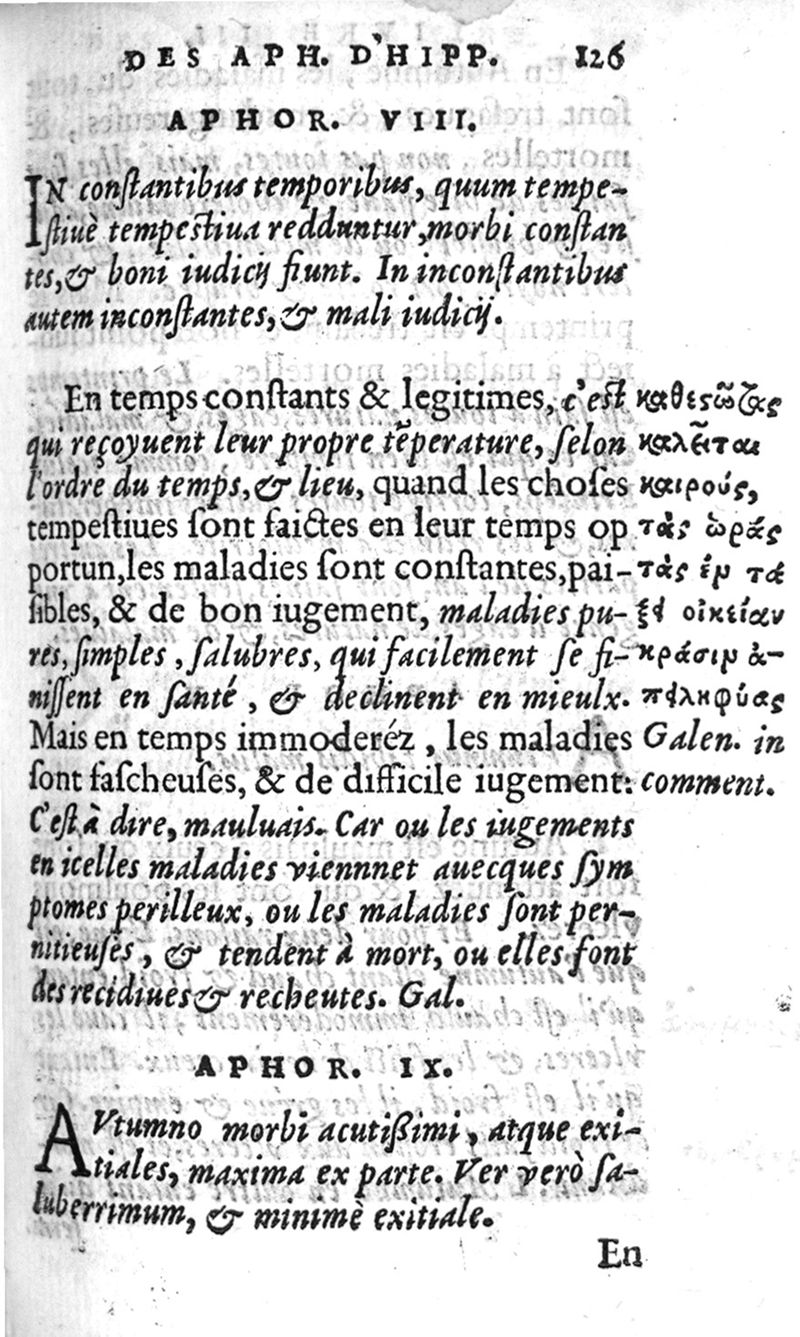 DES APH. D'HIPP. 126
APHOR. VIII.
IN constantibus temporibus, quum tempe-
stiuè tempestiua redduntur,morbi constan
tes,& boni iudicij fiunt. In inconstantibus
autem inconstantes,& mali iudicij.
En temps constants & legitimes, c'est
qui reçoyuent leur propre tẽperature, selon
l'ordre du temps,& lieu, quand les choses
tempestiues sont faictes en leur temps op
portun,les maladies sont constantes,pai-
sibles, & de bon iugement, maladies pu-
res,simples,salubres, qui facilement se fi-
nissent en santé, & declinent en mieulx.
Mais en temps immoderéz, les maladies
sont fascheuses, & de difficile iugement:
C'est à dire, mauluais. Car ou les iugements
en icelles maladies viennnet auecques sym
ptomes perilleux, ou les maladies sont per-
nitieuses, & tendent à mort, ou elles font
des recidiues & recheutes. Gal.
καθεςῶζας
καλεῖται
καιρούς,
τὰς ὡράς
τὰς ἐμ τά
ξἑ οἰκείαν
κράσιμ ἀ-
Galen. in
comment.
APHOR. IX.
AVtumno morbi acutißimi, atque exi-
tiales, maxima ex parte. Ver verò sa-
luberrimum, & minimè exitiale.
En